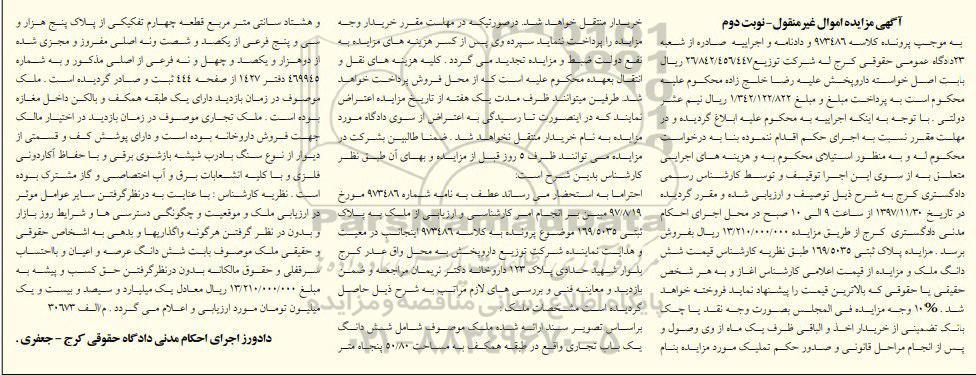 آگهی مزایده اموال غیر منقول - نوبت دوم
به موجب پرونده کلاسه ۹۷۳۴۸۶ و دادنامه و اجراییه صادره از شعبه
۲۳دادگاه عمومی حقوقی کرج له شرکت توزیع ۲۶/۸۴۲/۴۵۶/۴۴۷ ریال
بابت اصل خواسته داروپخش علیه رضا خلج زاده محکوم علیه
محکوم است به پرداخت مبلغ و مبلغ ۱/۳۴۲/۱۲۲/۸۲۲ ریال نیم عشر
دولتی . با توجه به اینکه اجراییه به محکوم علیه ابلاغ گردیده و در
مهلت مقرر نسبت به اجرای حکم اقدام ننموده بنا به درخواست
محکوم له و به منظور استیلای محکوم به و هزینه های اجرایی
متعلق به از سوی این اجرا توقیف و توسط کارشناس رسمی
دادگستری کرج به شرح ذیل توصیف و ارزیابی شده و مقرر گردیده
در تاریخ ۱۳۹۷/۱۱/۳۰ از ساعت ۹ الی ۱۰ صبح در محل اجرای احکام
مدنی دادگستری کرج از طریق مزایده ۱۳/۲۱۰/۰۰۰/۰۰۰ ریال بفروش
برسد . مزایده پلاک ثبتی ۱۶۹/۵۰۳۵ طبق نظریه کارشناس قیمت شش
دانگ ملک و مزایده از قیمت اعلامی کارشناس اغاز و به هر شخص
حقیقی یا حقوقی که بالاترین قیمت را پیشنهاد نماید فروخته خواهد
شد . ۱۰% وجه مزایده فی المجلس بصورت وجه نقد یا چک
بانک تضمینی از خریدار اخذ و الباقی ظرف یک ماه از وی وصول و
پس از انجام مراحل قانونی و صدور حکم تملیک مورد مزایده بنام
خریدار منتقل خواهد شد. درصورتیکه در مهلت مقرر خریدار وجه
مزایده را پرداخت ننماید سپرده وی پس از کسر هزینه های مزایده به
نفع دولت ضبط و مزایده تجدید می گردد . کلیه هزینه های نقل و
انتقال بعهده محکوم علیه است که از محل فروش پرداخت خواهد
شد. طرفین میتوانند ظرف مدت یک هفته از تاریخ مزایده اعتراض
نمایند که در اینصورت تا رسیدگی به اعتراض از سوی دادگاه مورد
مزایده به نام خریدار منتقل نخواهد شد . ضمنا طالبین بشرکت در
مزایده می توانند ظرف ۵ روز قبل از مزایده و بهای آن طبق نظر
کارشناس بدین شرح است:
احتراما به استحضار می رساند عطف به نامه شماره ۹۷۳۴۸۶ مورخ
۹۷/۸/۱۹ مبنی بر انجام امر کارشناسی و ارزیابی از ملک به پلاک
ثبتی ۱۶۹/۵۰۳۵ موضوع پرونده به کلاسه ۹۷۳۴۸۶ اینجانب در معیت
و هدایت نماینده شرکت توزیع داروپخش به محل واقع در کرج
بلوار شهید حدادی پلاک ۱۲۳ داروخانه دکتر نریمان مراجعه و ضمن
بازدید و معاینه فنی و بررسی های لازم مراتب به شرح ذیل حاصل
گردیده است مشخصات ملک :
براساس تصویر سند ارائه شده ملک موصوف شامل شش دانگ
یک باب تجاری واقع در طبقه همکف به مساحت ۵۰/۸۰ پنجاه متر
و هشتاد سانتی متر مربع قطعه چهارم تفکیکی از پلاک پنج هزار و
سی و پنج فرعی از یکصد و شصت ونه اصلی مفروز و مجزی شده
از دوهزار و یکصد و چهل و نه فرعی از اصلی مذکور و به شماره
۴۶۹۹۴۵ دفتر ۱۴۲۷ از صفحه ۴۴۴ ثبت و صادر گردیده است . ملک
موصوف در زمان بازدید دارای یک طبقه همکف و بالکن داخل مغازه
بوده است . ملک تجاری موصوف در زمان بازدید در اختیار مالک
جهت فروش داروخانه بوده است و دارای پوشش کف و قسمتی از
دیوار از نوع سنگ بادرب شیشه بازشوی برقی و با حفاظ آکاردئونی
فلزی و با کلیه انشعابات برق و آب اختصاصی و گاز مشترک بوده
است . نظریه کارشناس : با عنایت به درنظرگرفتن سایر عوامل موثر
در ارزیابی ملک و موقعیت و چگونگی دسترسی ها و شرایط روز بازار
و بدون در نظر گرفتن هرگونه واگذاریها و بدهی به اشخاص حقوقی
و حقیقی ملک موصوف بابت شش دانگ عرصه و اعیان و بااحتساب
سرقفلی و حقوق مالکانه بدون درنظرگرفتن حق کسب و پیشه به
مبلغ ۱۳/۲۱۰/۰۰۰/۰۰۰ ریال معادل یک میلیارد و سیصد و بیست و یک
میلیون تومان مورد ارزیابی و اعلام می گردد . م/الف ۳۰۶۷۳
دادورز اجرای احکام مدنی دادگاه حقوقی کرج - جعفری .
پایگاه اطلاع رسانی مناقصه و مزایده
۰۲۱-۸۸۳۴۹۶۷۰-۵